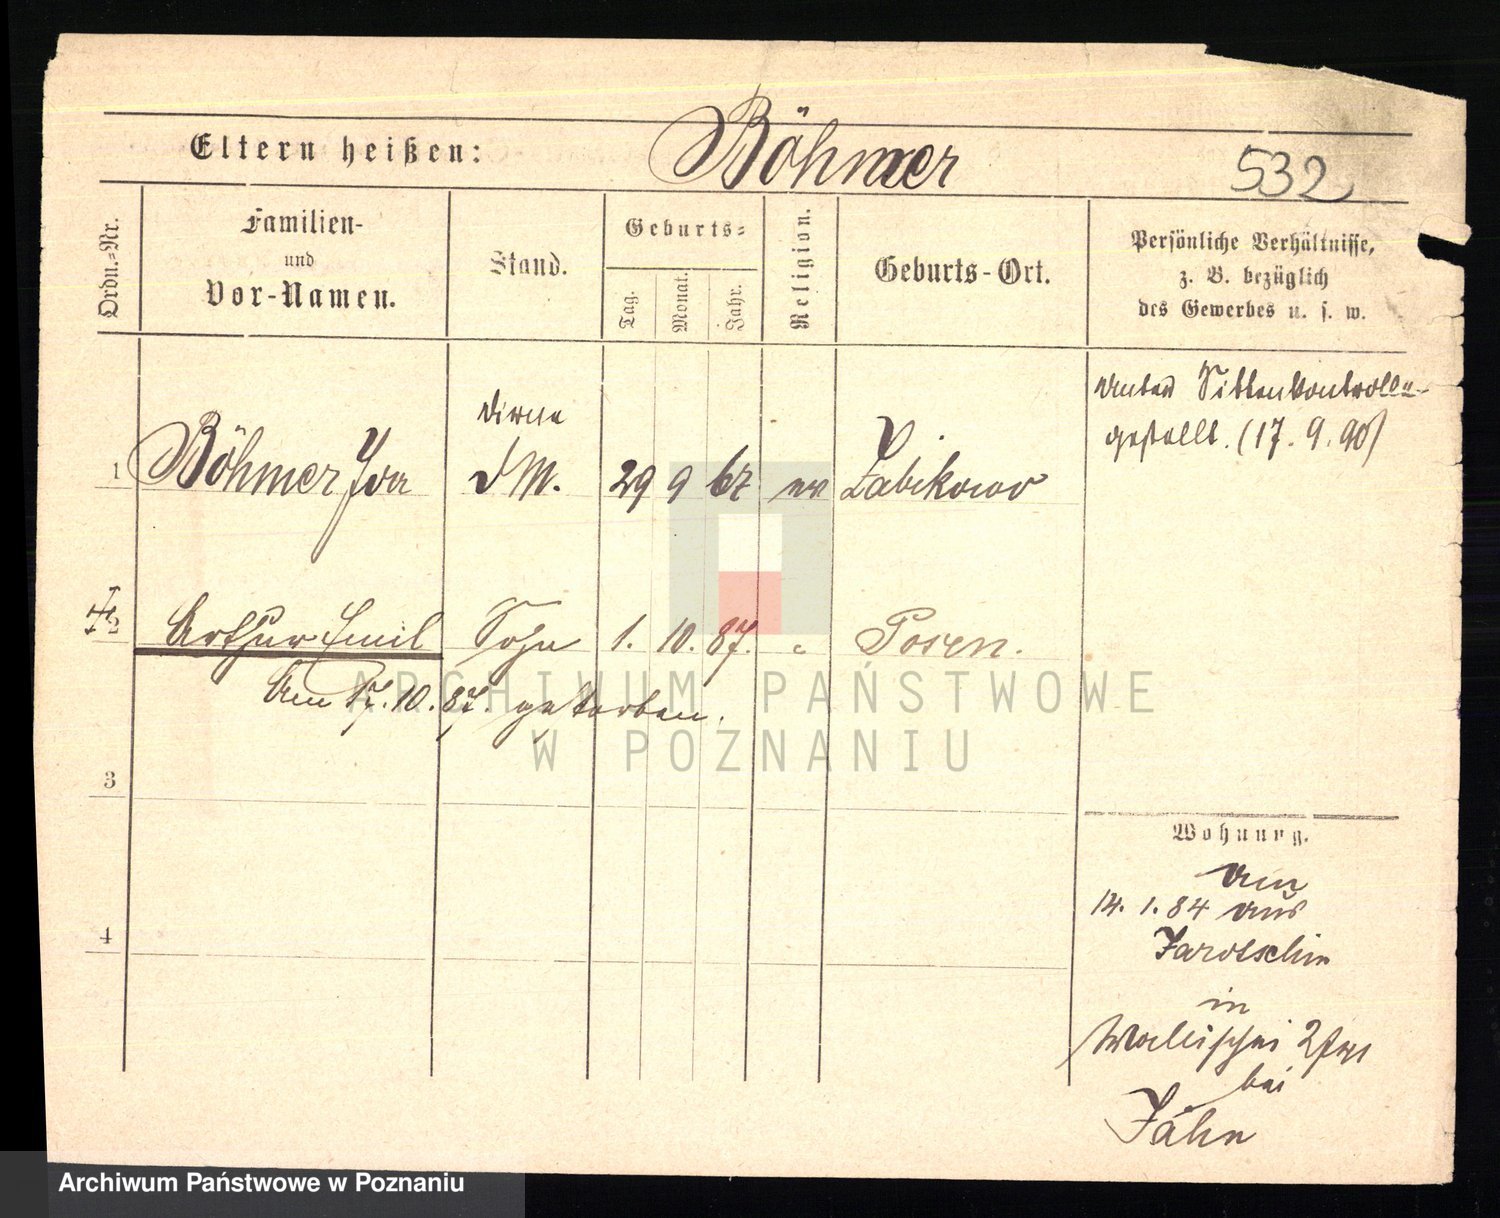 Eltern heißen: Böhmer 532
Ordn.-Nr.
Familien-
und
Vor-Namen.
Stand.
Geburts-
Tag.
Monat.
Jahr.
Religion.
Geburts-Ort.
Persönliche Verhältnisse,
z. B. bezüglich
des Gewerbes u. s. w.
1 Böhmer Ida
Dirne
29 9 67 ev Zabikowo
unter Sittenkontrolle
gestellt. (17. 9. 90)
2 Arthur Emil Sohn 1. 10. 87. " Posen.
Am 17. 10. 87. gestorben.
3
4
Wohnung.
am
14. 1. 84 aus
Jarotschin
in
Wallischei
bei
Jähn
ARCHIWUM PAŃSTWOWE
W POZNANIU
Archiwum Państwowe w Poznaniu